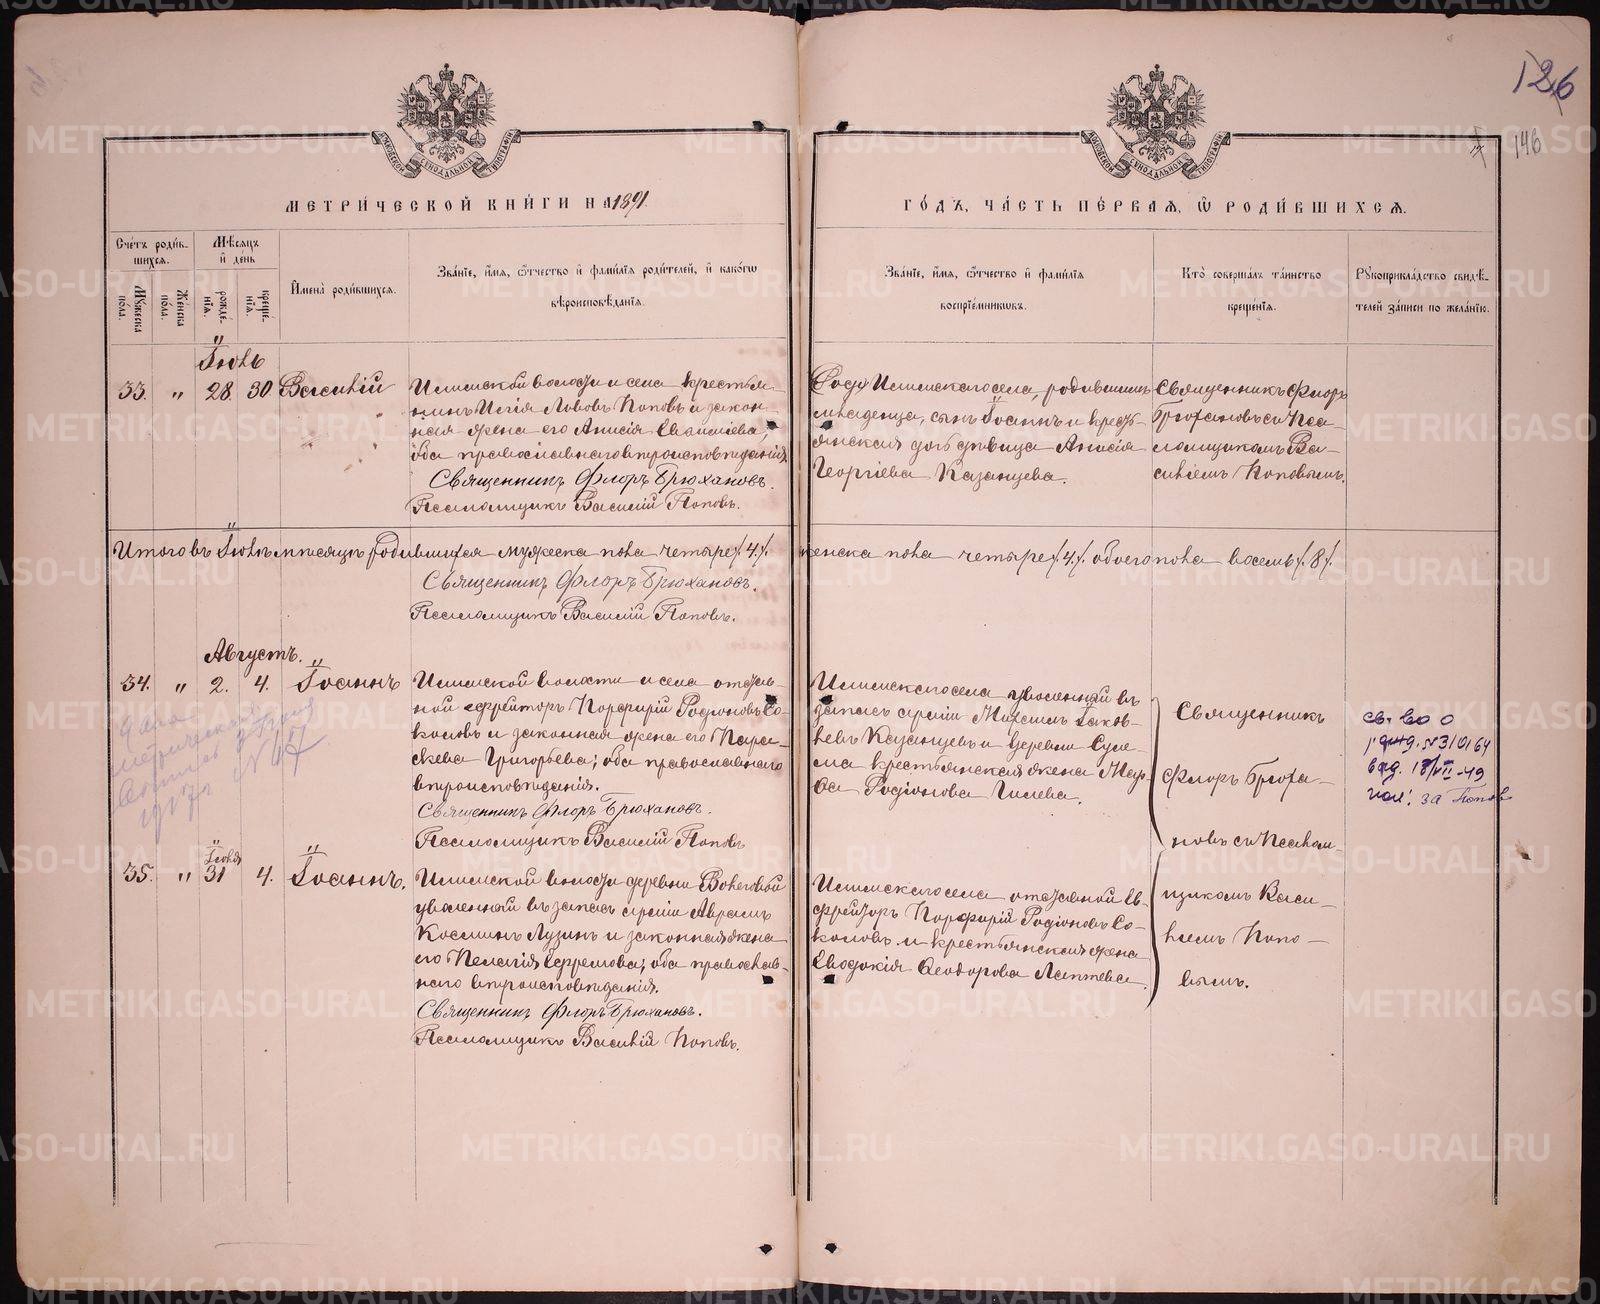 126
146
МОСКОВСКОЙ СѴНОДАЛЬНОЙ ТИПОГРАФІИ
МОСКОВСКОЙ СѴНОДАЛЬНОЙ ТИПОГРАФІИ
МЕТРИЧЕСКОЙ КНИГИ НА 1891.
ГОДЪ, ЧАСТЬ ПЕРВАЯ, Ѿ РОДИВШИХСЯ.
Счетъ родив-
шихся.
Мужеска пола.
Женска пола.
Мѣсяцъ и день
рожде-
нія.
креще-
нія.
Имена родившихся.
Званіе, имя, ѿтчество и фамилія родителей, и какогѡ
вѣроисповѣданія.
Званіе, имя, ѿтчество и фамилія
воспріемникѡвъ.
Кто совершалъ таинство
крещенія.
Рꙋкоприкладство свидѣ-
телей записи по желанію.
Іюль
33. " 28 30 Василій
Илимской волости и села крестья-
нинъ Илія Львовъ Поповъ и закон-
ная жена его Анисія
оба православнаго вѣроисповѣданія
Священникъ Флоръ Брюхановъ.
Псаломщикъ Василій Поповъ.
Того Илимскаго села, родившимъ
младенца, сынъ Іоаннъ и кресть-
янская дочь дѣвица Анисія
Георгіева Казанцева.
Священникъ Флоръ
Брюхановъ съ Пса-
ломщикомъ Ва-
силіемъ Поповымъ.
Итого въ Іюлѣ мѣсяцѣ родившихся мужеска пола четыре /4./. женска пола четыре /4./. обоего пола восемь /8/.
Священникъ Флоръ Брюхановъ.
Псаломщикъ Василій Поповъ.
Августъ.
34. " 2. 4. Іоаннъ
Илимской волости и села отстав-
ной ефрейторъ Порфирій Родіоновъ Со-
коловъ и законная жена его Пара-
скева Григорьева; оба православнаго
вѣроисповѣданія.
Священникъ Флоръ Брюхановъ.
Псаломщикъ Василій Поповъ
Илимскаго села уволенный въ
запасъ арміи Михаилъ Іаков-
левъ Казанцевъ и деревни Суле-
ма крестьянская жена Мар-
ѳа Родіонова Гилева.
Священникъ
Флоръ Брюха-
новъ съ Псалом-
щикомъ Васи-
ліемъ Попо-
вымъ.
св-во о
рожд. №310164
выд. 18/VII-49
пол. за Попов
метрическая
1917 г.
35. " Іюля 31 4. Іоаннъ.
Илимской волости деревни Волеговой
уволенный въ запасъ арміи Авраамъ
Космичъ Лузинъ и законная жена
его Пелагія Ефремова; оба православ-
наго вѣроисповѣданія.
Священникъ Флоръ Брюхановъ.
Псаломщикъ Василій Поповъ.
Илимскаго села отставной Е-
фрейторъ Порфирій Родіоновъ Со-
коловъ и крестьянская жена
Евдокія Ѳеодорова Лаптева.